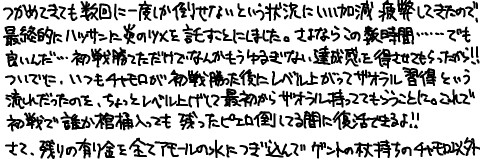 つかめてきても数回に一度しか倒せないという状況にいい加減疲弊してきたので、
最終的にハッサンに炎のツメを託すことにしました。さよならこの数時間……でも
良いんだ…初戦勝てただけでなんかもうゆるぎない達成感を得させてもらったから!!
ついでに、いつもチャモロが初戦勝った後にレベル上がってザオラル習得という
流れだったのを、ちょっとレベル上げして最初からザオラル持っててもらうことに。これで
初戦で誰か棺桶入っても残ったピエロ倒してる間に復活できるよ!!
さて、残りの有り金を全てアモールの水につぎ込んでゲントの杖持ちのチャモロ以外